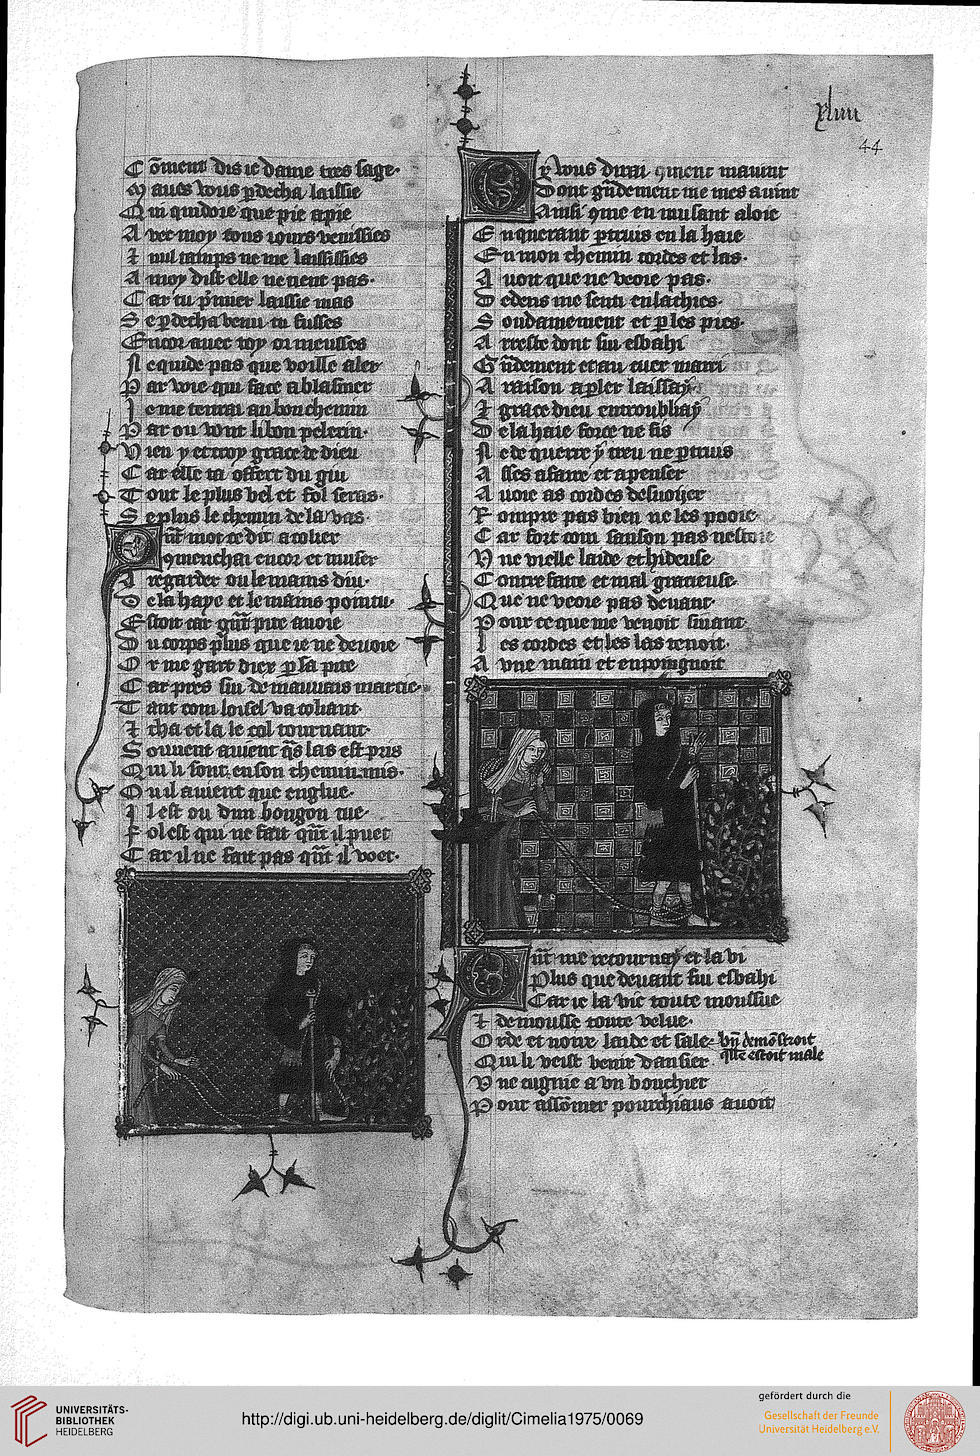 xliiii
44
Cōment dis ie dame tres sage
M aues vous p decha laissie
Qui quidoie que pie a pie
Auec moy tous iours venissies
Et nul tamps ne me laississies
A moy dist elle ne tient pas
Car tu p̄mier laissie mas
Se p decha venu tu fusses
Encor auec toy or meusses
Ne quide pas que voille aler
Par voie qui face a blasmer
Ie me tenrai au bon chemin
Par ou vont li bon pelerin
Vien y et troy grace de dieu
Car elle ta offert du qui
Tout le plus bel et fol seras
Se plus le chemin de la vas
Qn̄t mot ce dit a colier
9menchai encor et muser
A regarder ou le mains diu
De la haye et le mains pointu
Estoit car gn̄t pite auoie
Du corps plus que ie ne deuoie
Or me gart diex p sa pite
Car pres sui de mauuais marcie
Tant com loisel va coliant
Et cha et la le col tournant
Souuent auient q̄s las est pris
Qui li sont en son chemin mis
Ou il auient que englue
Il est ou dun bougon tue
Fol est qui ne fait qn̄t il puet
Car il ne fait pas qn̄t il voet
Or vous dirai 9ment mauint
Dont gn̄dement me mesauint
Ainsi 9me en musant aloie
En querant ptruis en la haie
En mon chemin cordes et las
Auoit que ne veoie pas
Dedens me senti enlachies
Soudainement et p les pies
Arreste dont fui esbahi
Gn̄dement et au cuer marri
A raison apler laissay
Et grace dieu entroubliay
De la haie force ne fis
Ne de querre y treu ne ptruis
Asses a faire et a penser
Auoie as cordes desnoyer
Rompre pas bien ne les pooie
Car fort com sanson pas nestoie
Vne vielle laide et hideuse
Contrefaite et mal gracieuse
Que ne veoie pas deuant
Pour ce que me venoit siuant
Les cordes et les las tenoit
A vne main et enpoingnoit
Qn̄t me retournay et la vi
Plus que deuant fui esbahi
Car ie la vic toute moussue
Et de mousse toute velue
Orde et noire laide et sale
bn̄ demōstroit
q̄lle estoit male
Qui li veist venir dansier
Vne cuignie a vn bouchier
Pour assōmer pourchiaus auoit
UNIVERSITÄTS-
BIBLIOTHEK
HEIDELBERG
http://digi.ub.uni-heidelberg.de/diglit/Cimelia1975/0069
gefördert durch die
Gesellschaft der Freunde
Universität Heidelberg e.V.